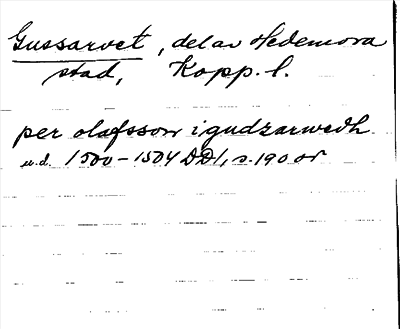 Gussarvet, del av Hedemora
stad, Kopp. l.
per olafsson i gudzarwedh
u.d. 1500-1504 DD1, s. 190 or